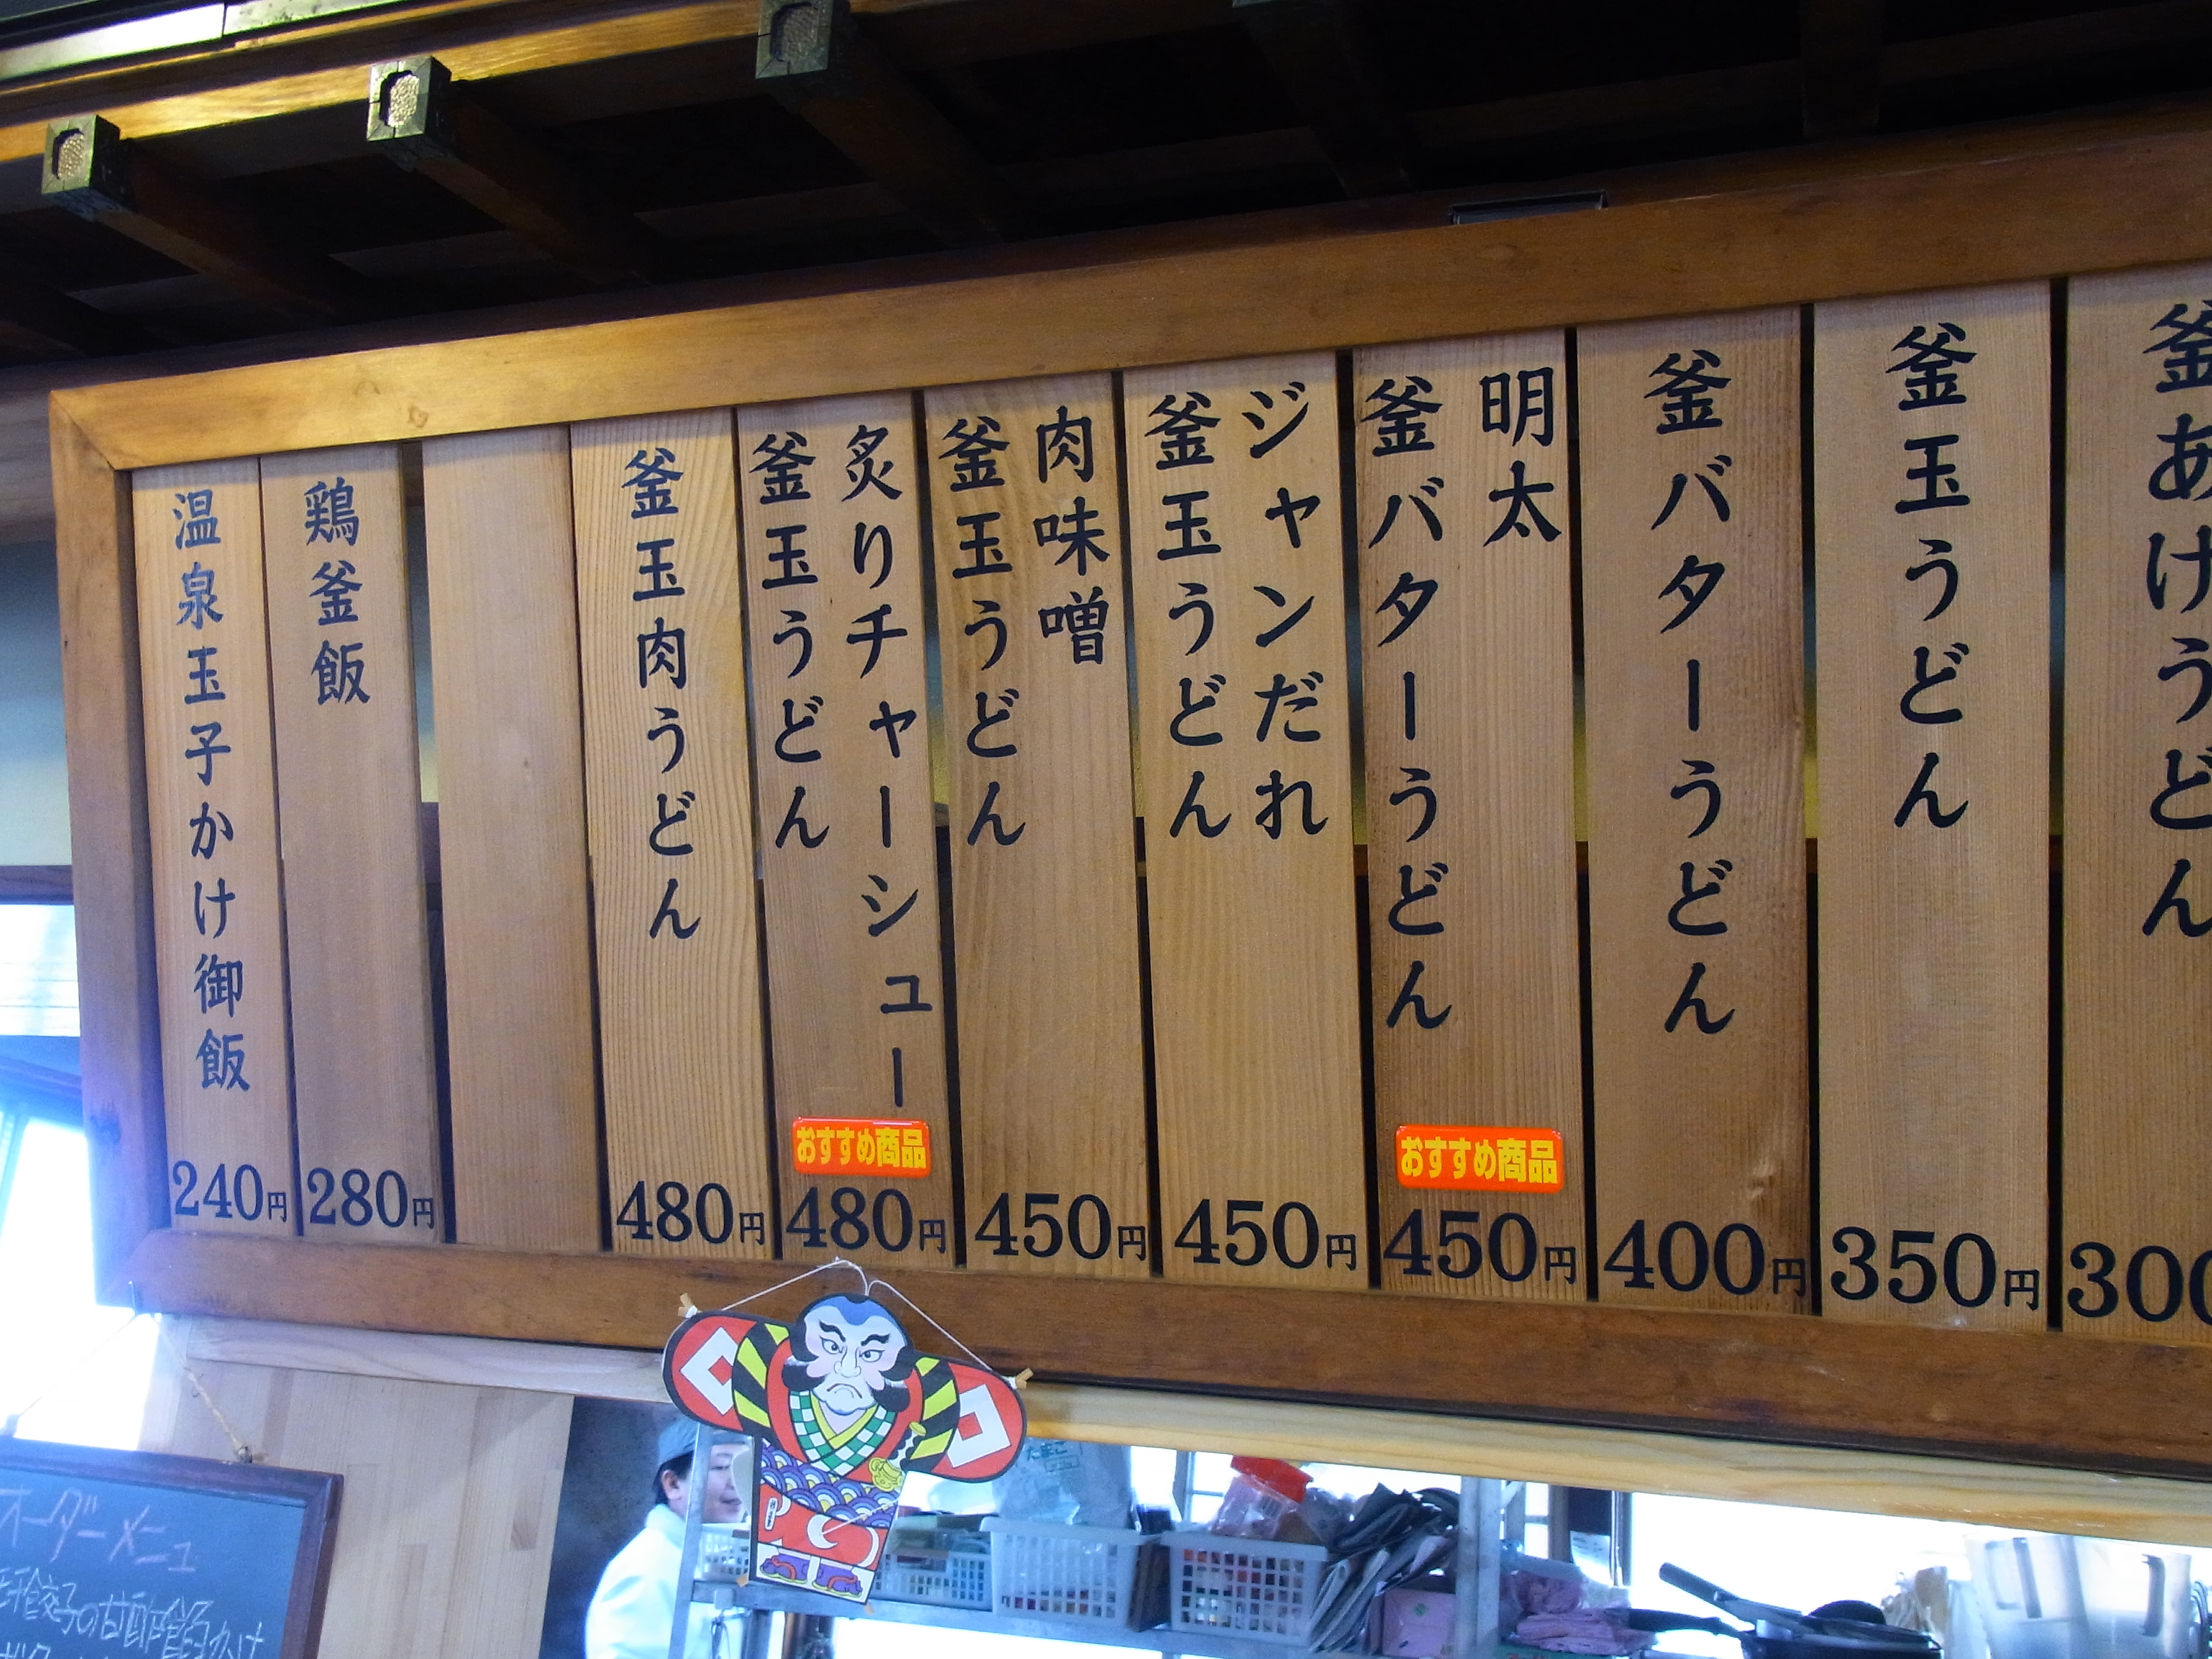 釜あけうどん
300
釜玉うどん
350円
釜バターうどん
400円
明太
釜バターうどん
おすすめ商品
450円
ジャンだれ
釜玉うどん
450円
肉味噌
釜玉うどん
450円
炙りチャーシュー
釜玉うどん
おすすめ商品
480円
釜玉肉うどん
480円
鶏釜飯
280円
温泉玉子かけ御飯
240円
オーダーメニュ
餃子の甘酢餡かけ